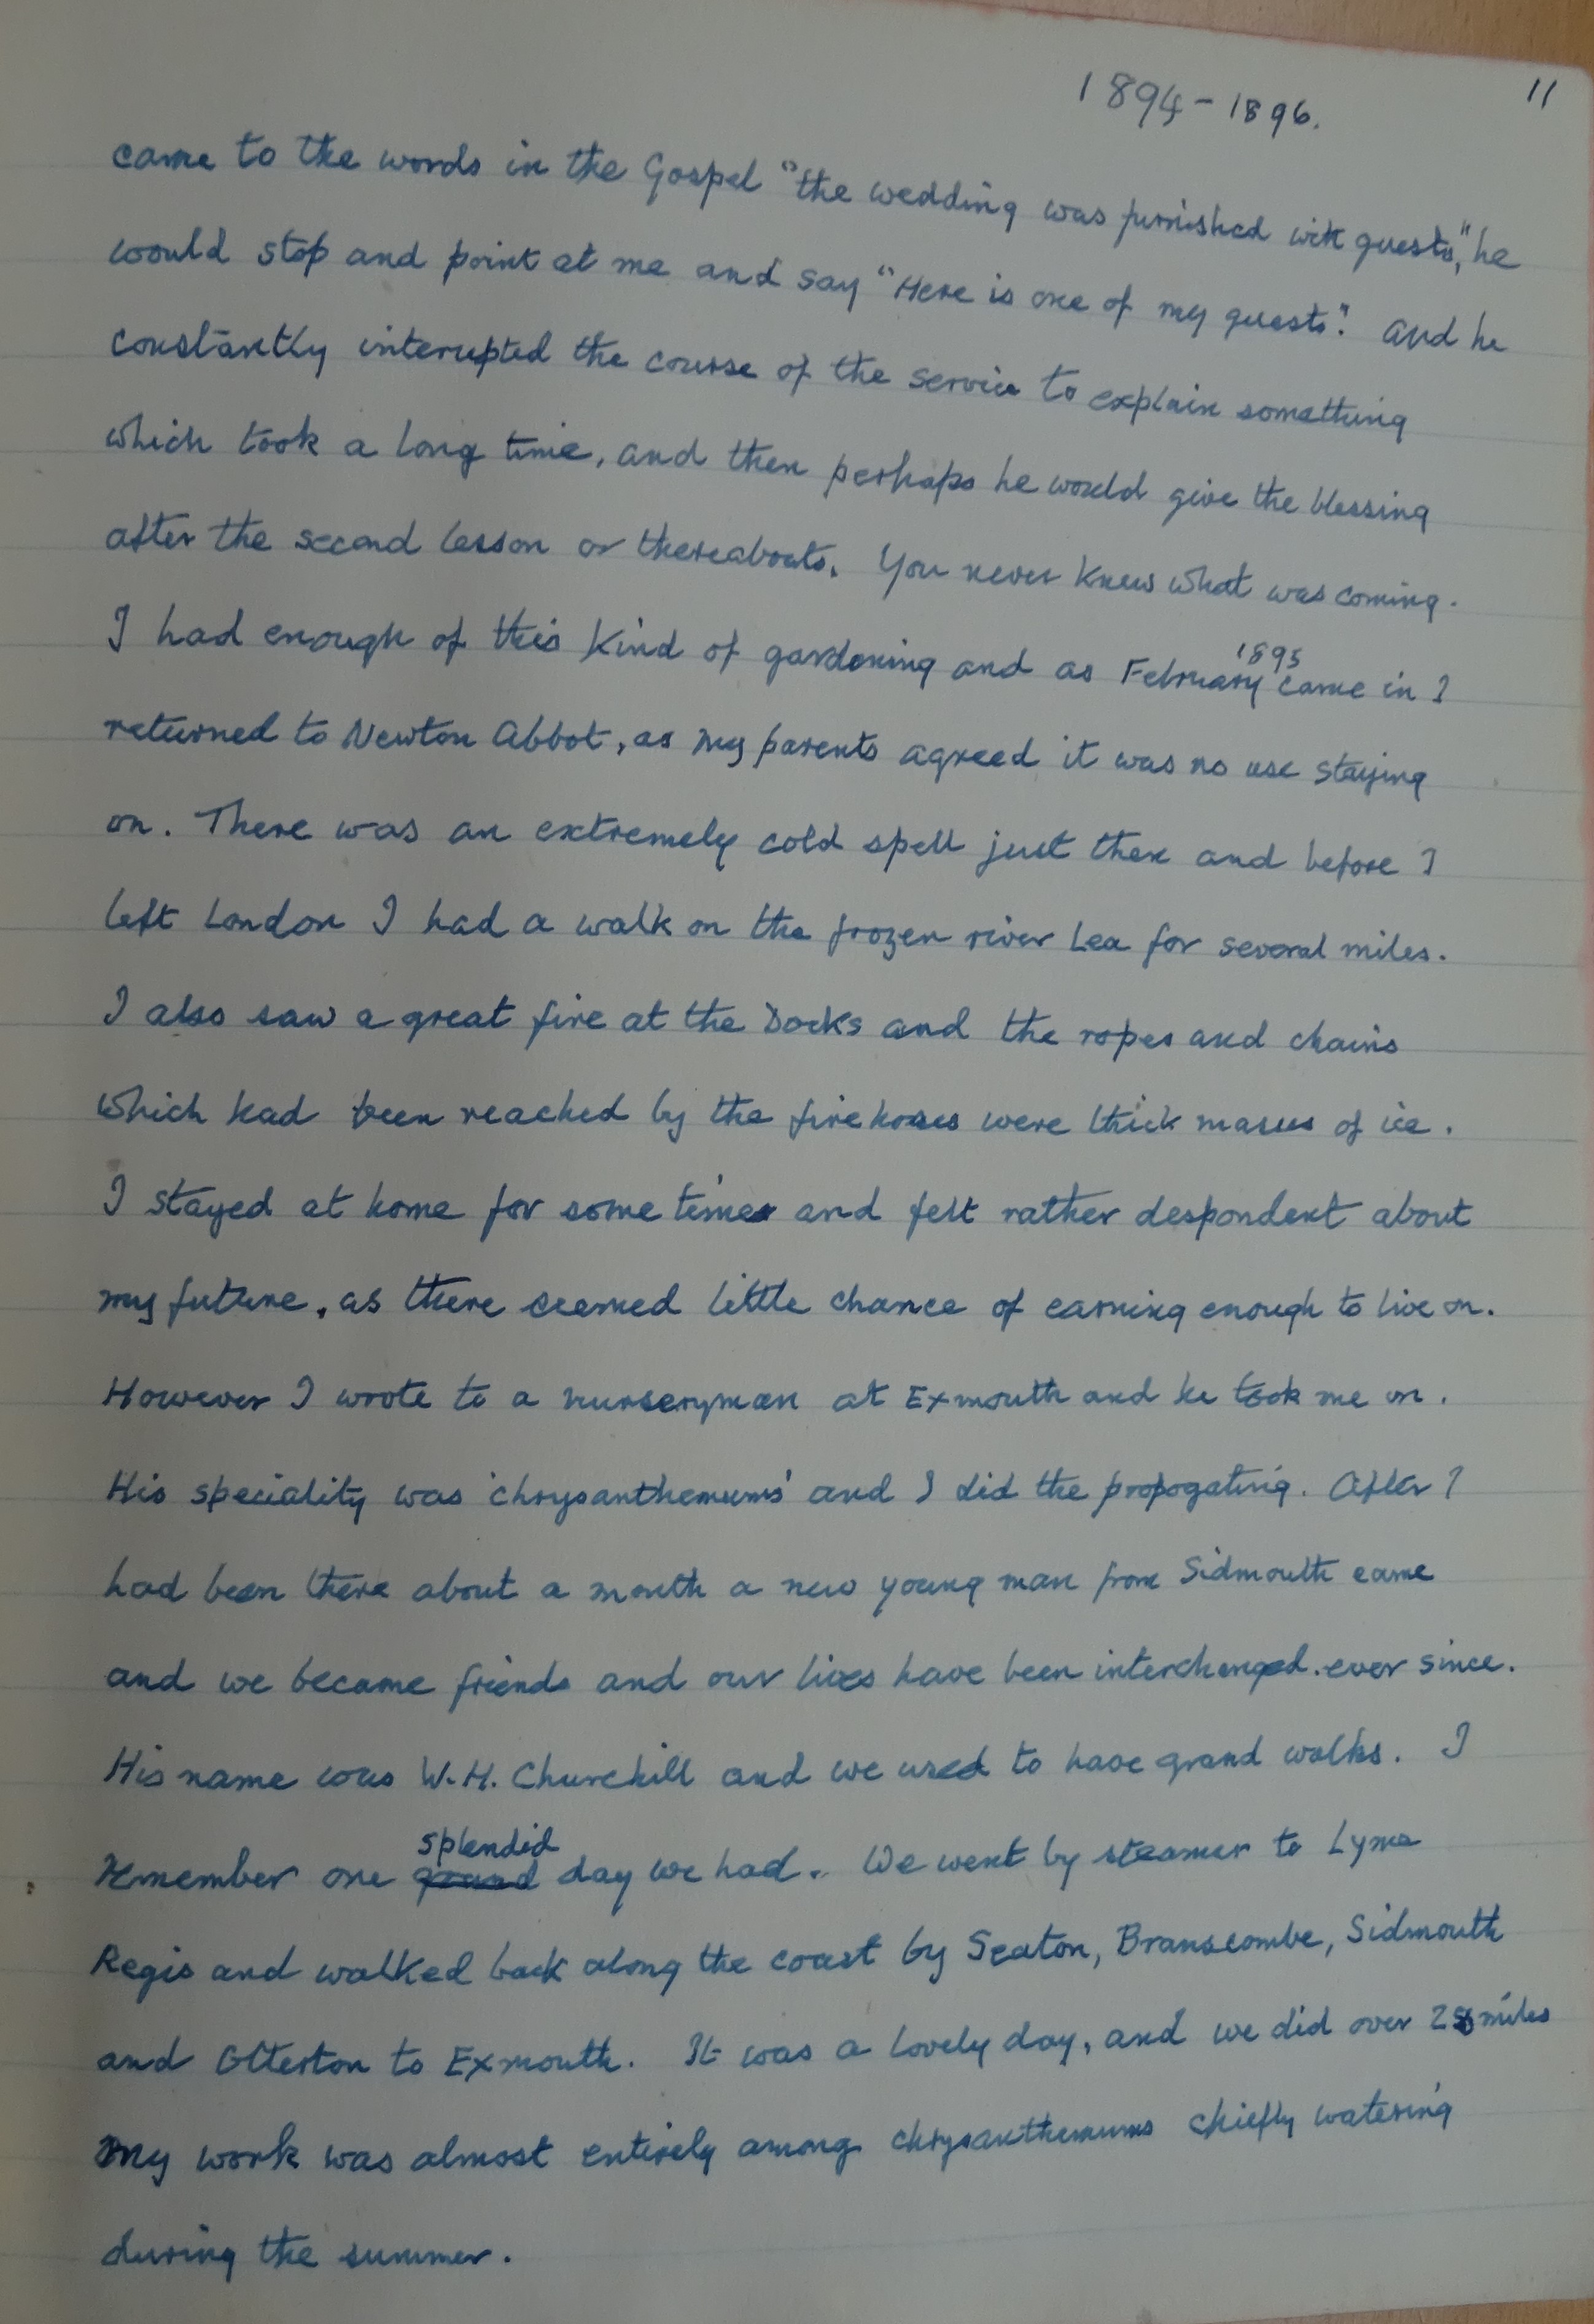 1894-1896.
11
came to the words in the Gospel "the wedding was furnished with guests," he
would stop and point at me and say "Here is one of my guests". And he
constantly interupted the course of the service to explain something
which took a long time, and then perhaps he would give the blessing
after the second lesson or thereabouts. You never knew what was coming.
I had enough of this kind of gardening and as February 1895 came in I
returned to Newton Abbot, as my parents agreed it was no use staying
on. There was an extremely cold spell just then and before I
left London I had a walk on the frozen river Lea for several miles.
I also saw a great fire at the Docks and the ropes and chains
which had been reached by the fire hoses were thick masses of ice.
I stayed at home for some time and felt rather despondent about
my future, as there seemed little chance of earning enough to live on.
However I wrote to a nurseryman at Exmouth and he took me on.
His speciality was 'chrysanthemums' and I did the propogating. After I
had been there about a month a new young man from Sidmouth came
and we became friends and our lives have been interchanged ever since.
His name was W.H. Churchill and we used to have grand walks. I
remember one grand splendid day we had. We went by steamer to Lyme
Regis and walked back along the coast by Seaton, Branscombe, Sidmouth
and Otterton to Exmouth. It was a lovely day, and we did over miles
My work was almost entirely among chrysanthemums chiefly watering
during the summer.